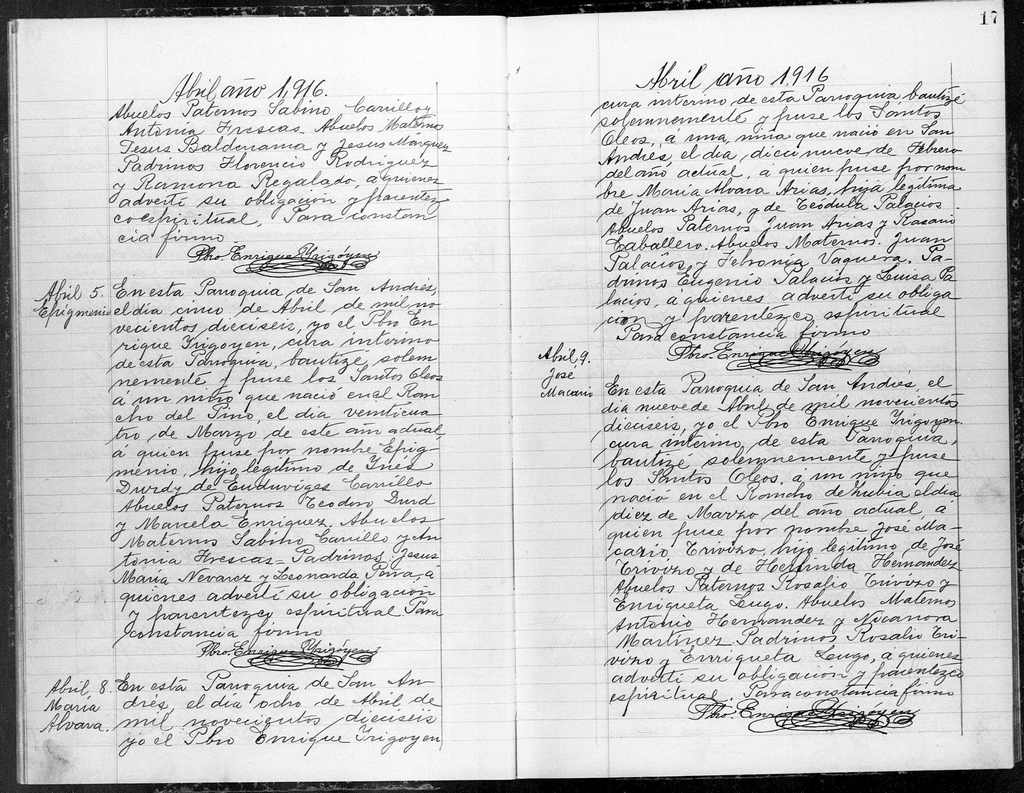 Abril año 1,916.
Abuelos Paternos Sabino Carrillo y
Antonia Frescas. Abuelos Maternos
Jesus Balderama y Jesus Marquez
Padrinos Florencio Rodriguez
y Ramona Regalado, a quienes
advertí su obligacion y parentez
co espiritual, Para constan
cia firmo
Pbro. Enrique Yrigóyen
Abril 5.
Epigmenio
En esta Parroquia de San Andrés,
el dia cinco de Abril de mil no
vecientos dieciseis, yo el Pbro En
rique Yrigoyen, cura interino
de esta Parroquia, bauticé solem
nemente y puse los Santos Oleos
á un niño que nació en el Ran
cho del Pino, el dia veinticua
tro de Marzo de este año actual,
á quien puse por nombre Epig
menio, hijo legítimo de Ynés
Durd y de Eduviges Carrillo
Abuelos Paternos Teodoro Durd
y Manuela Enriquez. Abuelos
Maternos Sabino Carrillo y An
tonia Frescas= Padrinos, Jesus
Maria Nevarez y Leonarda Parra, á
quienes advertí su obligacion
y parentezco espiritual Para
constancia firmo
Pbro. Enrique Yrigóyen
Abril, 8.
María
Alvara.
En esta Parroquia de San An
drés, el dia ocho de Abril de
mil novecientos dieciseis
yo el Pbro Enrique Yrigoyen
17
Abril año 1916
cura interino de esta Parroquia, bauticé
solemnemente y puse los Santos
Oleos, á una niña que nació en San
Andrés, el dia diecinueve de Febrero
del año actual, a quien puse por nom
bre María Alvara Arias, hija legítima
de Juan Arias, y de Teódula Palacios.
Abuelos Paternos Juan Arias y Rosario
Caballero. Abuelos Maternos. Juan
Palacios, y Febronia Vaquera. Pa-
drinos Eugenio Palacios y Luisa Pa
lacios, a quienes advertí su obliga
cion y parentezco espiritual
Para constancia firmo
Pbro. Enrique Yrigoyen
Abril, 9.
José
Macario
En esta Parroquia de San Andrés, el
dia nueve de Abril de mil novecientos
dieciseis, yo el Pbro Enrique Yrigoyen
cura interino, de esta Parroquia,
bauticé solemnemente y puse
los Santos Oleos, á un niño que
nació en el Rancho de Rubia el dia
diez de Marzo del año actual, a
quien puse por nombre José Ma-
cario Trivizo, hijo legítimo, de José
Trivizo y de Hernández
Abuelos Paternos Rosalio Trivizo y
Enriqueta Lugo. Abuelos Maternos
Antonio Hernandez y Nicanora
Martinez Padrinos Rosalio Tri-
vizo y Enriqueta Lugo, a quienes
advertí su obligacion y parentezco
espiritual. Para constancia firmo
Pbro. Enrique Yrigoyen